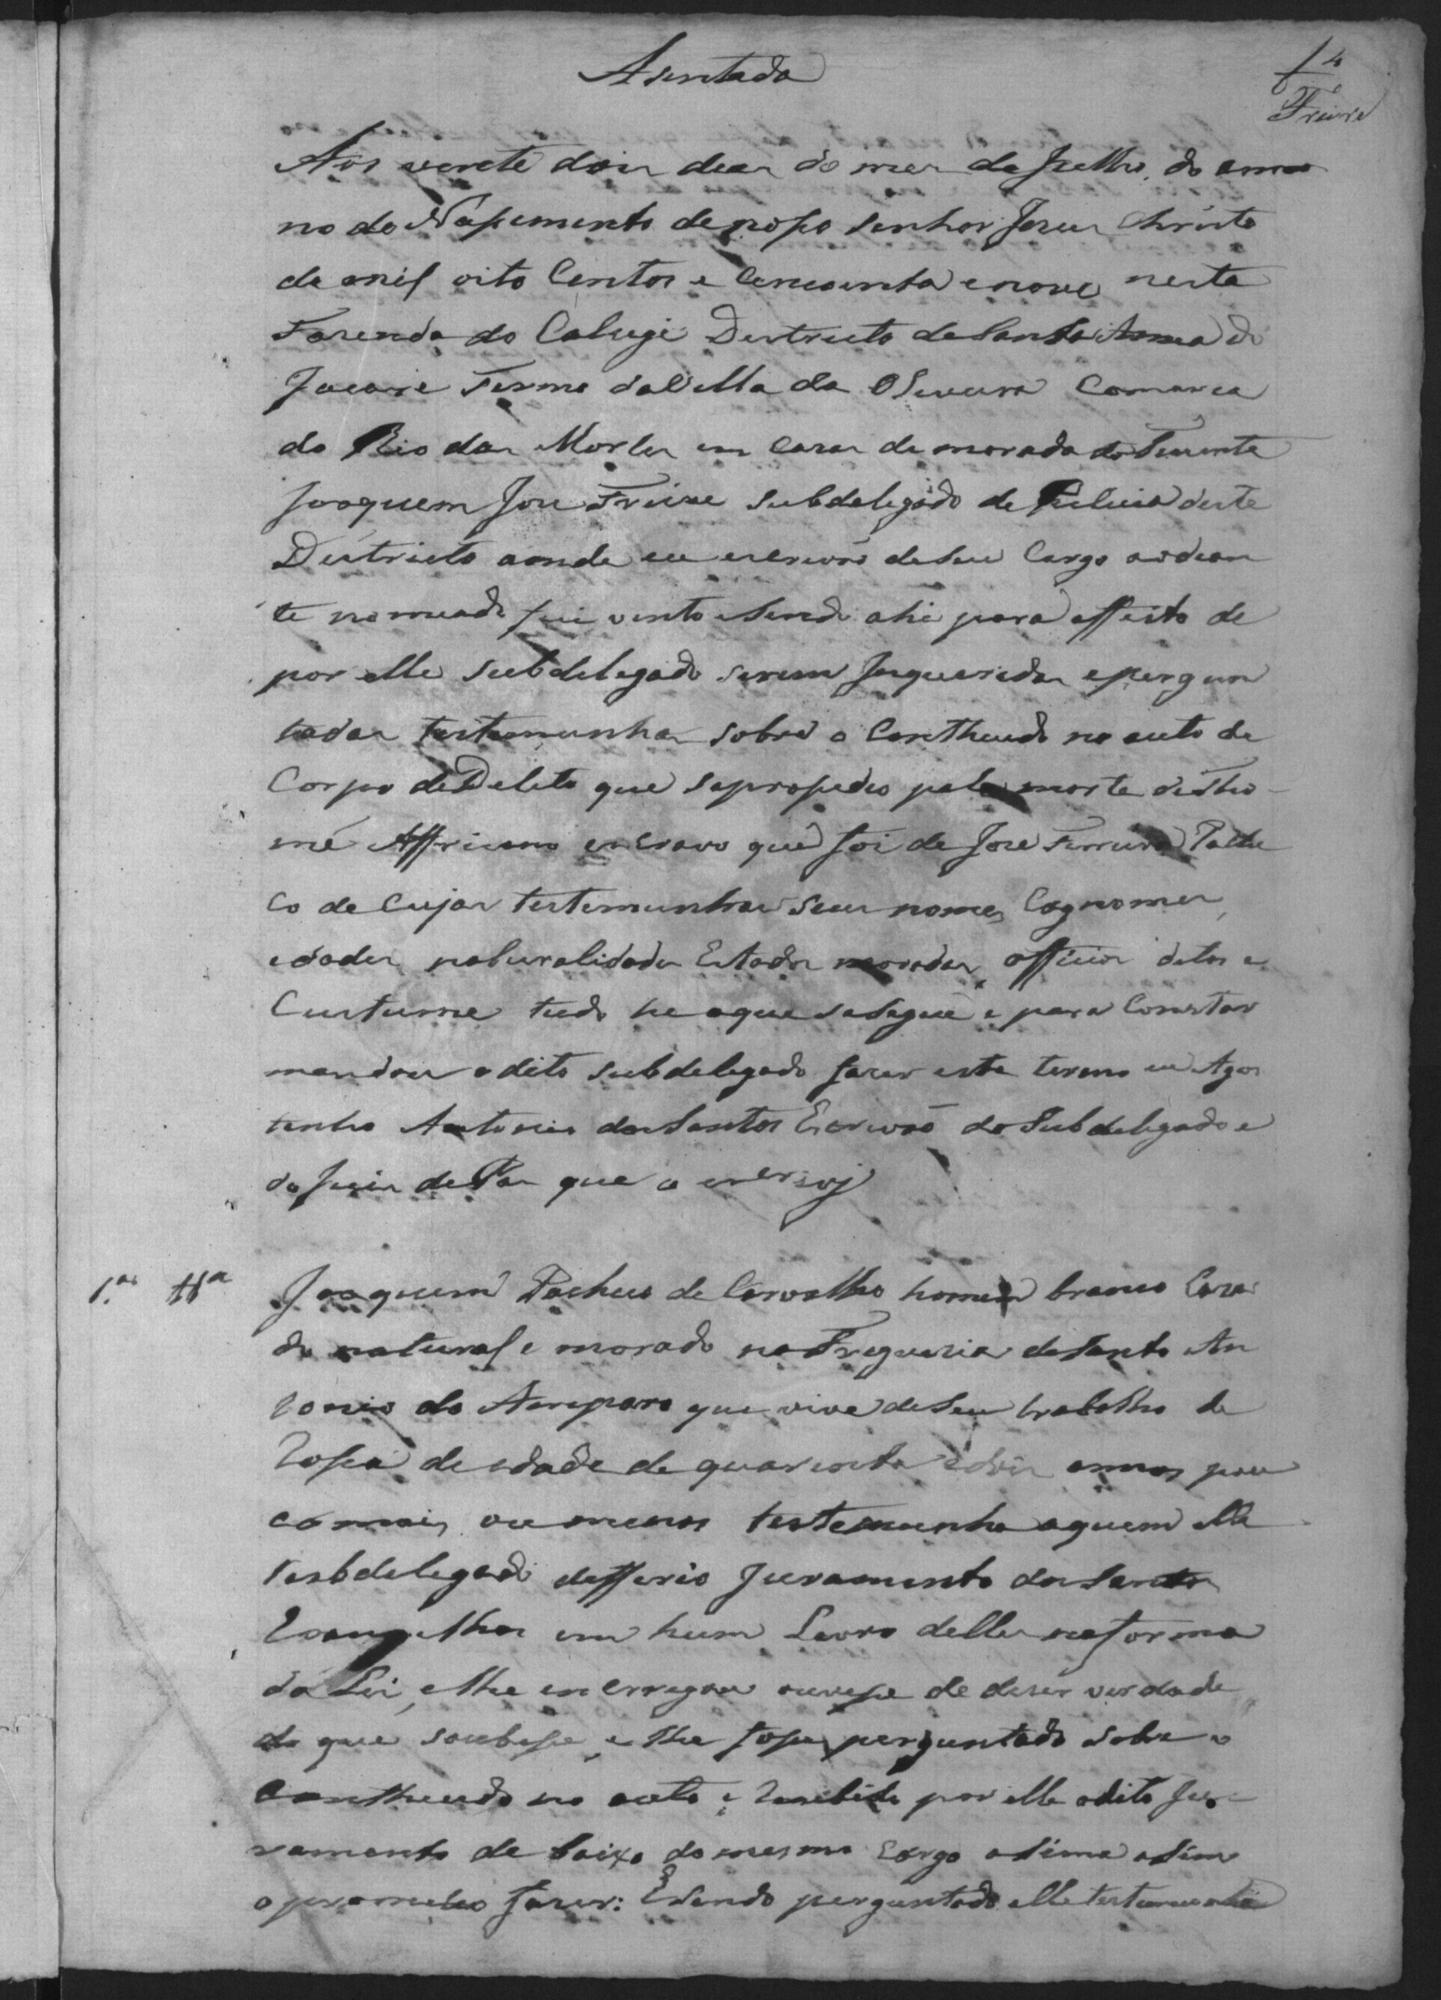 Asentada
4
Freire
Aos vente dois dias do mes de Julho do anno
no do Nassimento de nosso Senhor Jesus Christo
de mil oito Centos e Cincoenta e nove nesta
Fazenda do Districto de Santa Anna do
Jacare Termo da Villa da Oliveira Comarca
do Rio das Mortes em Casas de morada do Tenente
Joaquem Jose Freire Subdelegado de Pulicia deste
Destricto aonde eu escrivaõ de seu Cargo aodean
te nomeado fui vindo e sendo ahi para effeito de
por elle Subdelegado serem Inqueridas e pergun
tadas testemunhas sobre o Contheudo no auto de
Corpo de Delito que se prosedeo pela morte de Tho-
mé Affricano escravo que foi de Jose Ferreira
Co de Cujas testemunhas seus nomes, Cognomes,
edades, naturalidades Estados moradas, officios ditos e
Custume tudo he o que se segue e para Constar
mandou o dito Subdelegado fazer este termo eu Agos
tinho Antonio dos Santos Escrivaõ do Subdelegado e
do Juiz de Paz que o escrevy
1.as Ttª
Joaquim Pacheco de Carvalho homem branco Caza
do natural e morado na Freguezia de Santo An
tonio do Amparo que vive de seu trabalho de
Rossa de edade de quarenta e dois annos pou
co mais ou menos testemunha aquem elle
Subdelegado defferio Juramento dos Santos
Evangelhos em hum Livro delles na forma
da Lei, e lhe encerregou ouvesse de dizer verdade
do que soubesse, e lhe fosse perguntado sobre o
Conthendo no auto, e Recebido por elle o dito Ju
ramento de baixo do mesmo Cargo assima assim
o prometeo fazer: E sendo perguntado elle testemunha